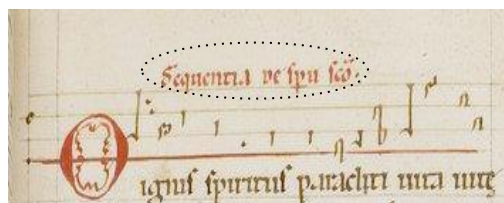 Sequentia de spu sco.
O ignis spiritus paracliti uita uite